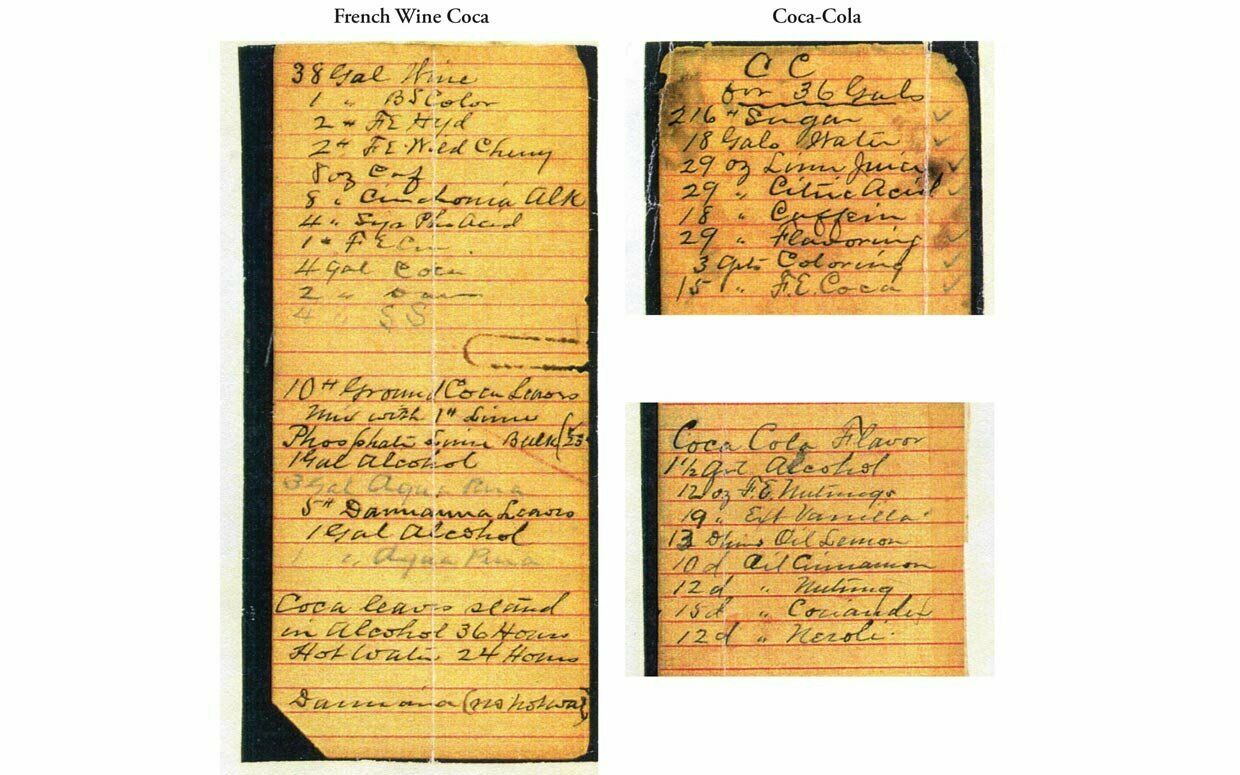 French Wine Coca
38 Gal Wine
1 " BS Color
2 # F E Hyd
2 # F E Wild Cherry
8 oz Caf
8 " Cinchonia Alk
4 " Syr Phs Acid
1 # F E
4 Gal Coca
2 "
4 " S S
10 # Ground Coca Leaves
Mix with 1 # Lime
Phosphate Lime Bulk
1 Gal Alcohol
3 Gal Aqua Pura
5 # Dammanna Leaves
1 Gal Alcohol
1 " Aqua Pura
Coca leaves stand
in Alcohol 36 Hours
Hot Water 24 Hours
Dammiana (no hot wat
Coca-Cola
C C
for 36 Gals
216 # Sugar
18 Gals Water
29 oz Lime Juice
29 " Citric Acid
18 " Caffein
29 " Flavoring
3 qts Coloring
15 " F.E. Coca
Coca Cola Flavor
1½ Qrt Alcohol
12 oz F.E. Nutmegs
19 " Ext Vanilla
13 Oil Lemon
10 d Oil Cinnamon
12 d " Nutmeg
15 d " Coriander
12 d " Neroli